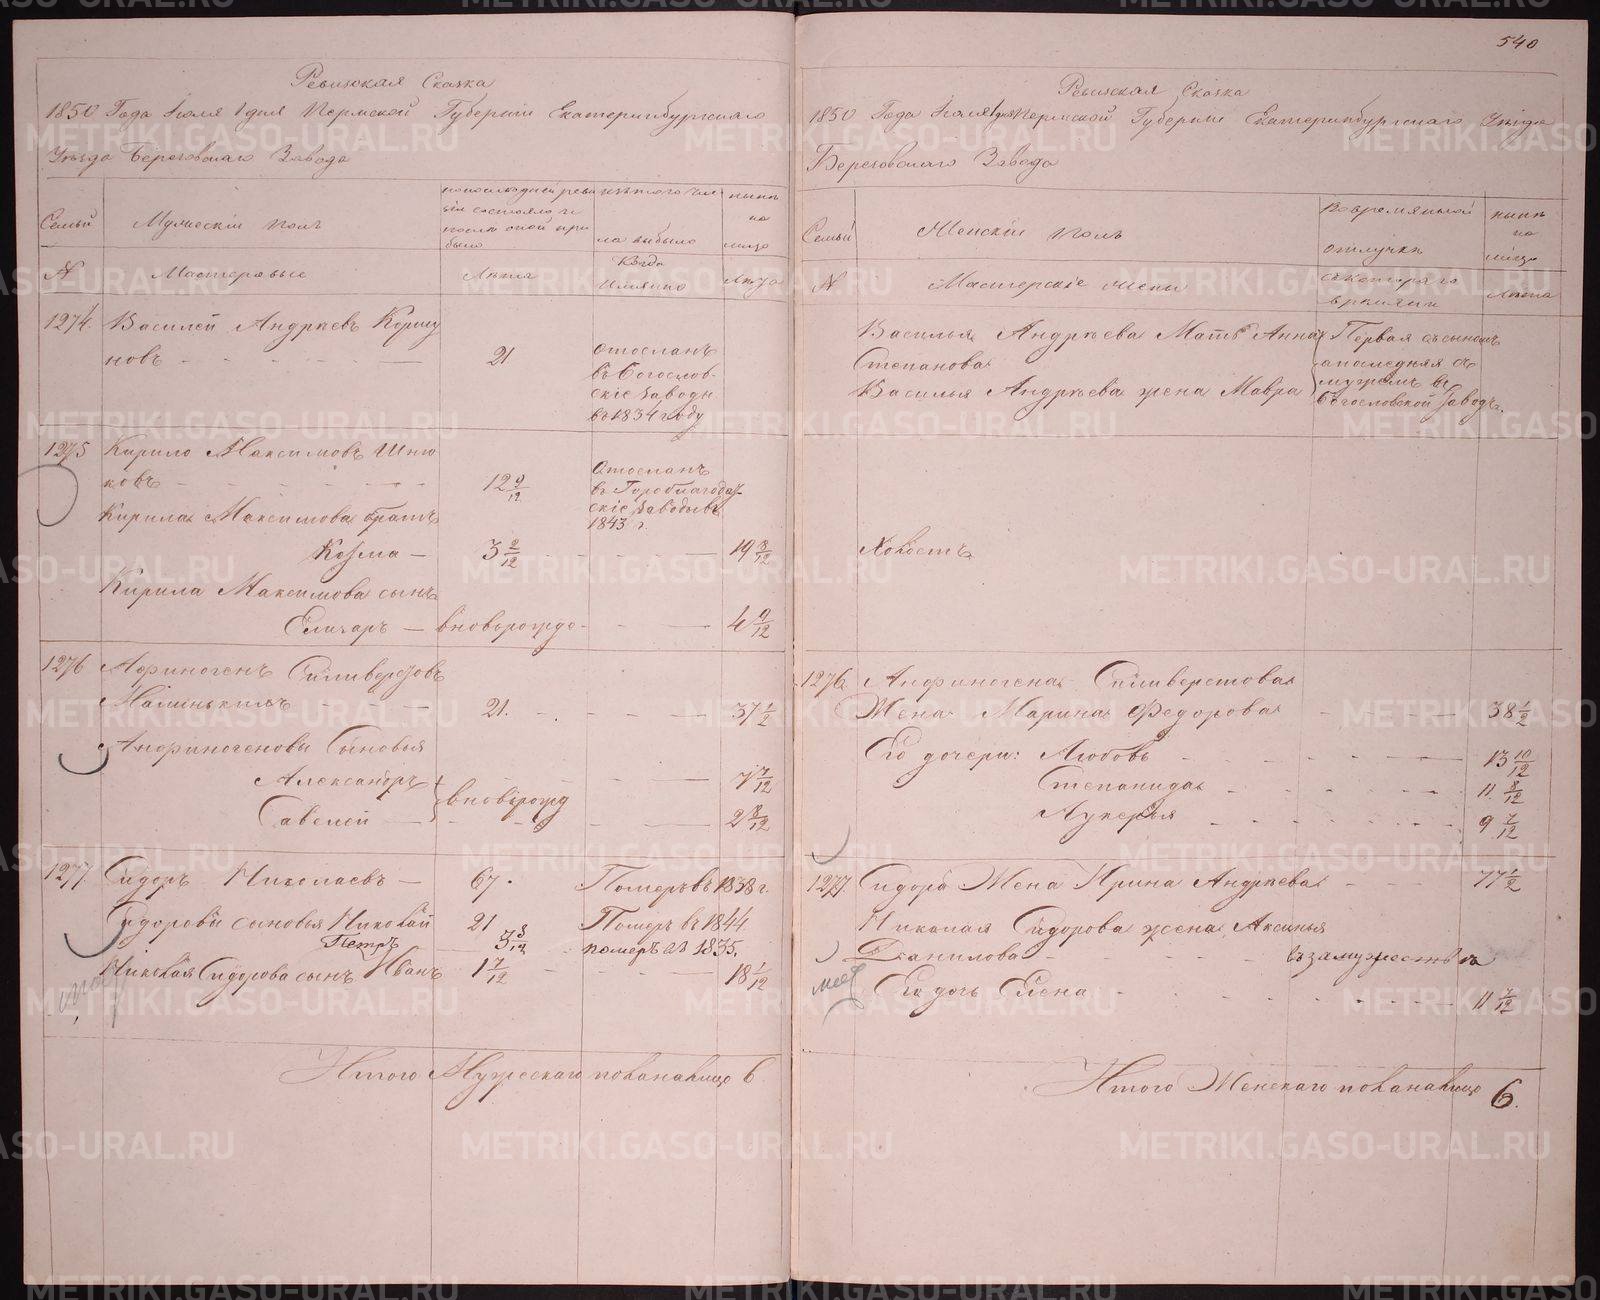 540
Ревизская Сказка
1850 Года Іюля 1 дня Пермской Губерніи Екатеринбургскаго
Уѣзда Березовскаго Завода
Семьи
Мужескій полъ
по последней реви
зіи состояло и
после оной при
было
изъ того чис
ла выбыло
нынѣ
на
лицо
№
Мастеровые
Лѣта
Когда
Именно
Лѣта
1274. Василей Андреевъ Коршу
новъ 21
Отосланъ
въ Богослов-
скіе Заводы
въ 1834 году
1275 Кирило Максимовъ
ковъ 12 9/12
Отосланъ
въ Гороблагодат-
скіе Заводы въ
1843 г.
Кирила Максимова братъ
Козма 3 2/12 19 8/12
Кирила Максимова сынъ
вновьрожде 4 9/12
1276 Афиногенъ Силиверстовъ
Малинькихъ 21. 37 1/2
Анфиногеновы Сыновья
Александръ вновьрожд 7 7/12
Савелей 2 8/12
1277. Сидоръ Николаевъ 67. Померъ въ 1838 г.
Сидоровы сыновья Николай 21 Померъ въ 1844.
Петръ 3 8/12 померъ въ 1835.
Николая Сидорова сынъ Иванъ 1 7/12 18 1/12
Итого Мужескаго пола налицо 6
Ревизская Сказка
1850 Года Іюля 1 дня Пермской Губерніи Екатеринбургскаго Уѣзда
Березовскаго Завода
Семьи
Женскій полъ
Во временной
отлучкѣ
нынѣ
на
лицо
№
Мастерскіе жены
съ котораго
времяни
Лѣта
Василья Андрѣева Мать Анна
Степанова
Василья Андрѣева жена Мавра
Первая съ сыномъ
а последняя съ
мужемъ въ
Богословской Заводъ.
Холостъ
1276. Анфиногена Силиверстова
Жена Марина Федорова 38 1/2
Его дочери: Любовь 13 10/12
Степанида 11. 8/12
Лукерья 9 7/12
1277. Сидора Жена Ирина Андреева 77 1/2
Николая Сидорова жена Аксинья
Данилова въ замужествѣ
Его дочь Елена 11 7/12
Итого Женскаго пола налицо 6.
METRIKI.GASO-URAL.RU